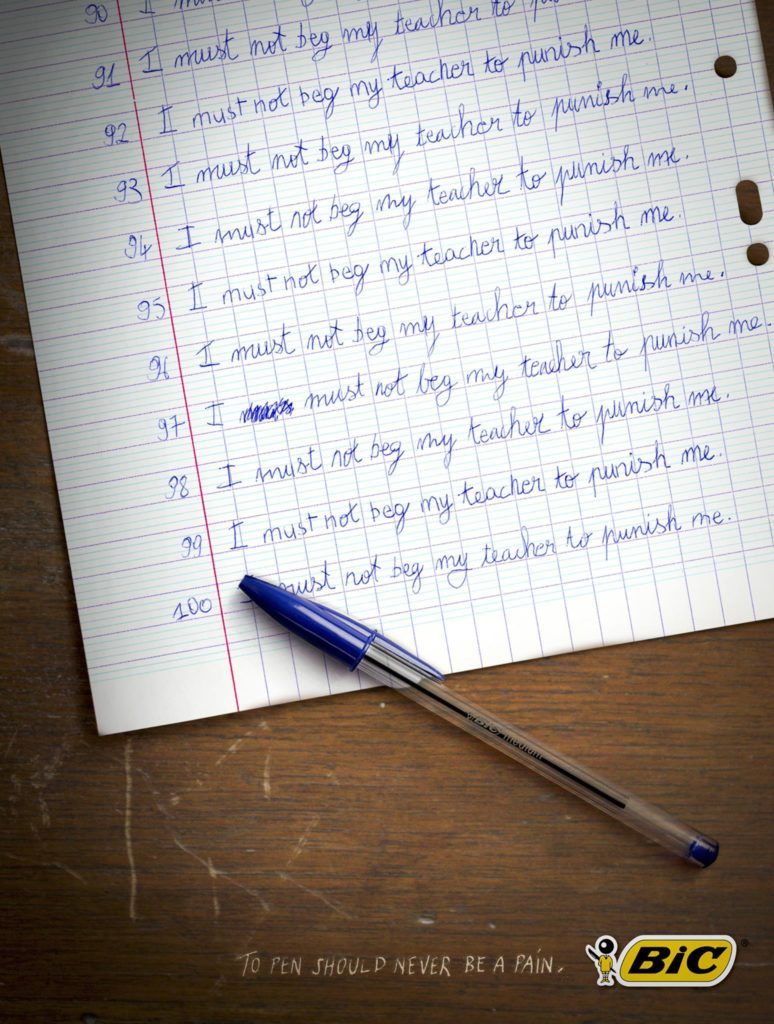 90 I must
91 I must not beg my teacher to
92 I must not beg my teacher to punish me.
93 I must not beg my teacher to punish me.
94 I must not beg my teacher to punish me.
95 I must not beg my teacher to punish me.
96 I must not beg my teacher to punish me.
97 I must not beg my teacher to punish me.
98 I must not beg my teacher to punish me.
99 I must not beg my teacher to punish me.
100 must not beg my teacher to punish me.
BIC Medium
TO PEN SHOULD NEVER BE A PAIN.
BIC®